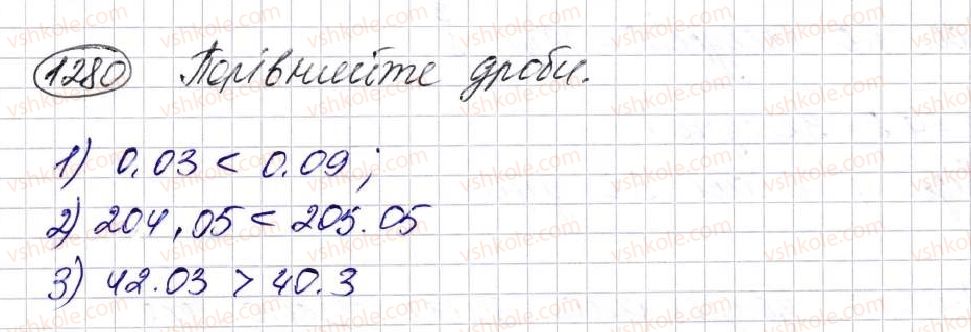 1280 Порівняйте дроби.
1) 0.03 < 0.09;
2) 204,05 < 205.05
3) 42.03 > 40.3